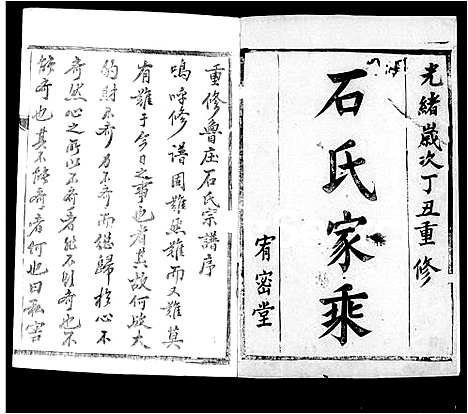 光緒歲次丁丑重修
石氏家乘
宥密堂
重修魯庄石氏宗譜序
嗚呼修譜固難然難而又難莫
有難于今日之事也者其故何哉夫
的財不齊力不齊而總歸於心不
齊然心之所以不齊者能不到齊也亦
能齊也其不能齊者何也曰私害